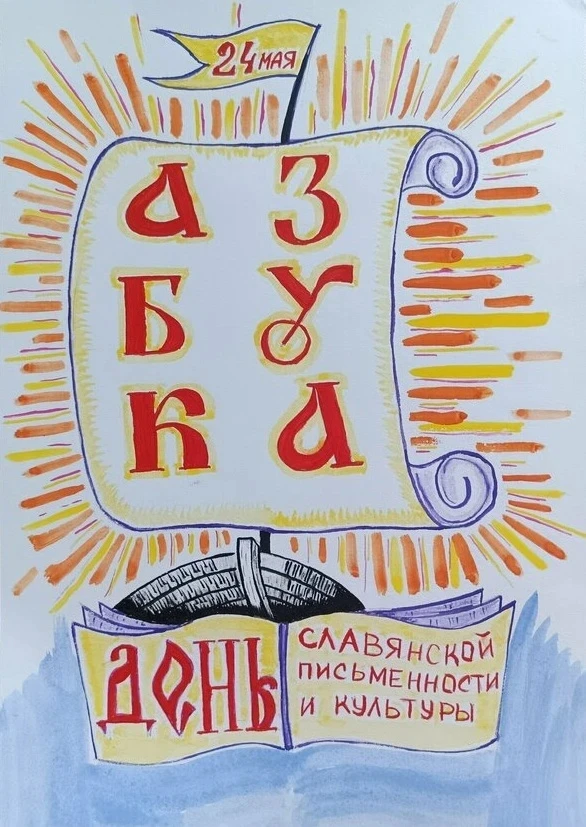 24 МАЯ
АЗ
БУ
КА
ДЕНЬ
СЛАВЯНСКОЙ
ПИСЬМЕННОСТИ
И КУЛЬТУРЫ